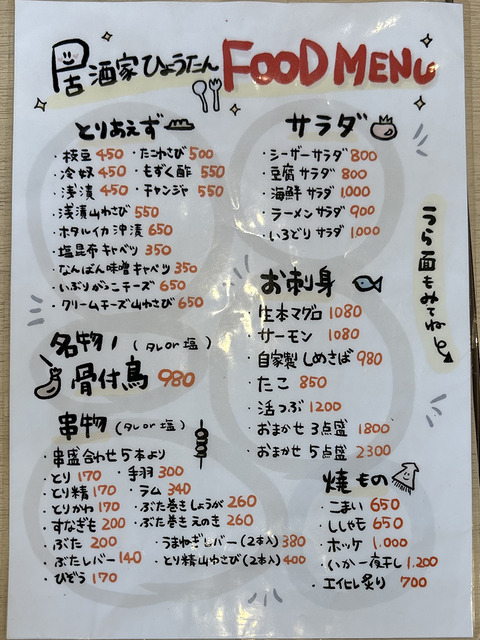 居酒家ひょうたん FOOD MENU
とりあえず
・枝豆 450 ・たこわさび 500
・冷奴 450 ・もずく酢 550
・浅漬 450 ・チャンジャ 550
・浅漬山わさび 550
・ホタルイカ沖漬 650
・塩昆布キャベツ 350
・なんばん味噌キャベツ 350
・いぶりがっこチーズ 650
・クリームチーズ山わさび 650
名物! (タレor塩)
骨付鳥 980
串物 (タレor塩)
・串盛合わせ5本より
・とり 170 ・手羽 300
・とり精 170 ・ラム 340
・とりかわ 170 ・ぶた巻きしょうが 260
・すなぎも 200 ・ぶた巻きえのき 260
・ぶた 200 ・うまねぎレバー(2本入) 380
・ぶたレバー 140 ・とり精山わさび(2本入) 400
・ひぞう 170
サラダ
・シーザーサラダ 800
・豆腐サラダ 800
・海鮮サラダ 1000
・ラーメンサラダ 900
・いろどりサラダ 1000
お刺身
・生本マグロ 1080
・サーモン 1080
・自家製しめさば 980
・たこ 850
・活つぶ 1200
・おまかせ3点盛 1800
・おまかせ5点盛 2300
焼もの
・こまい 650
・ししゃも 650
・ホッケ 1.000
・いか一夜干し 1.200
・エイヒレ炙り 700
うら面もみてね